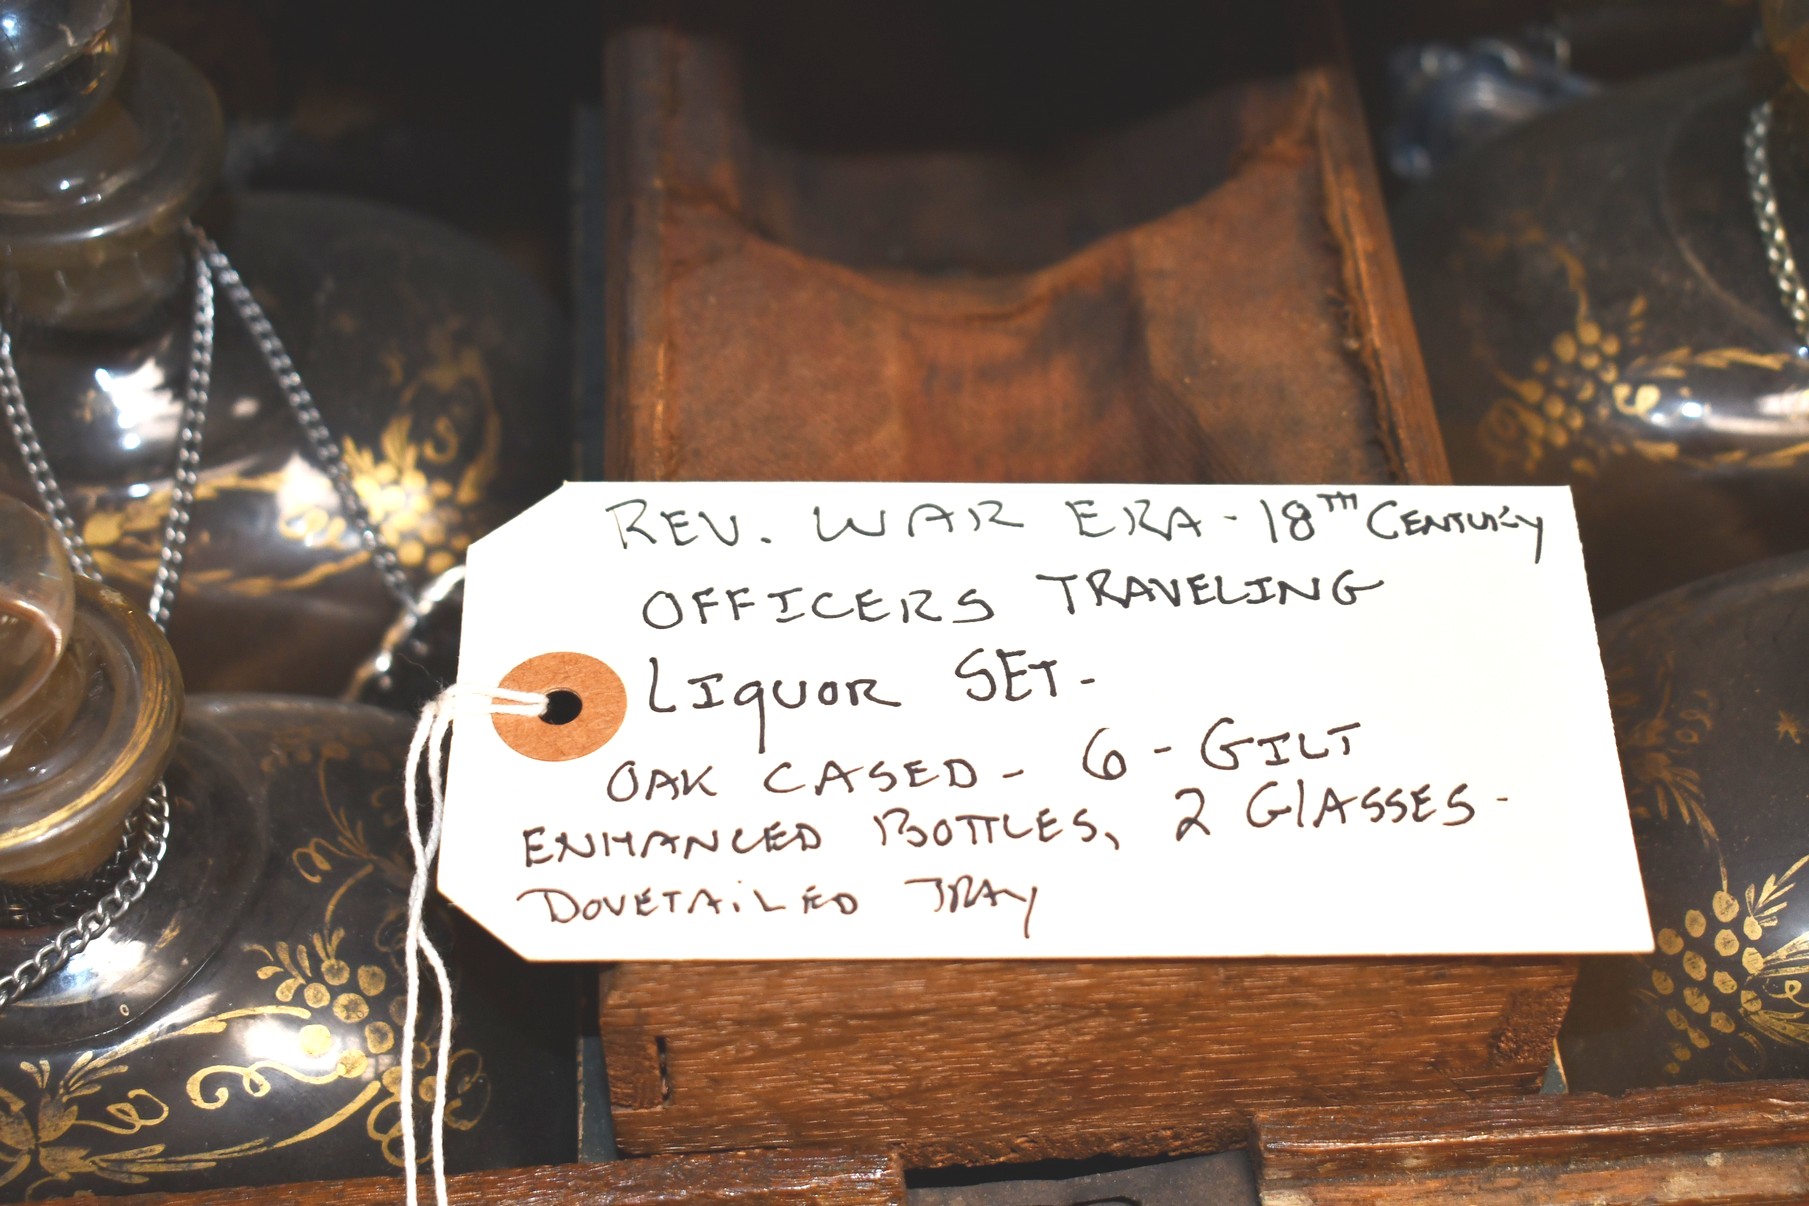 REV. WAR ERA - 18TH CENTURY
OFFICERS TRAVELING
LIQUOR SET -
OAK CASED - 6 - GILT
ENHANCED BOTTLES, 2 GLASSES -
DOVETAILED TRAY